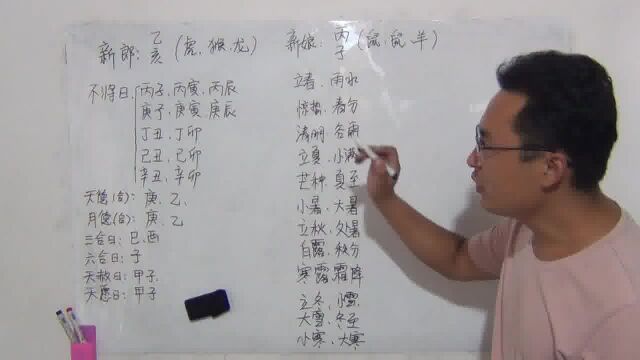 新郎: 乙亥 (虎、猴、龙)
新娘: 丙子 (鼠、鼠、羊)
不将日: 丙子、丙寅、丙辰
庚子、庚寅、庚辰
丁丑、丁卯
己丑、己卯
辛丑、辛卯
天德(合): 庚、乙、
月德(合): 庚、乙
三合日: 巳、酉
六合日: 子
天赦日: 甲子、
天愿日: 甲子
立春、雨水
惊蛰、春分
清明、谷雨
立夏、小满
芒种、夏至
小暑、大暑
立秋、处暑
白露、秋分
寒露、霜降
立冬、小雪
大雪、冬至
小寒、大寒